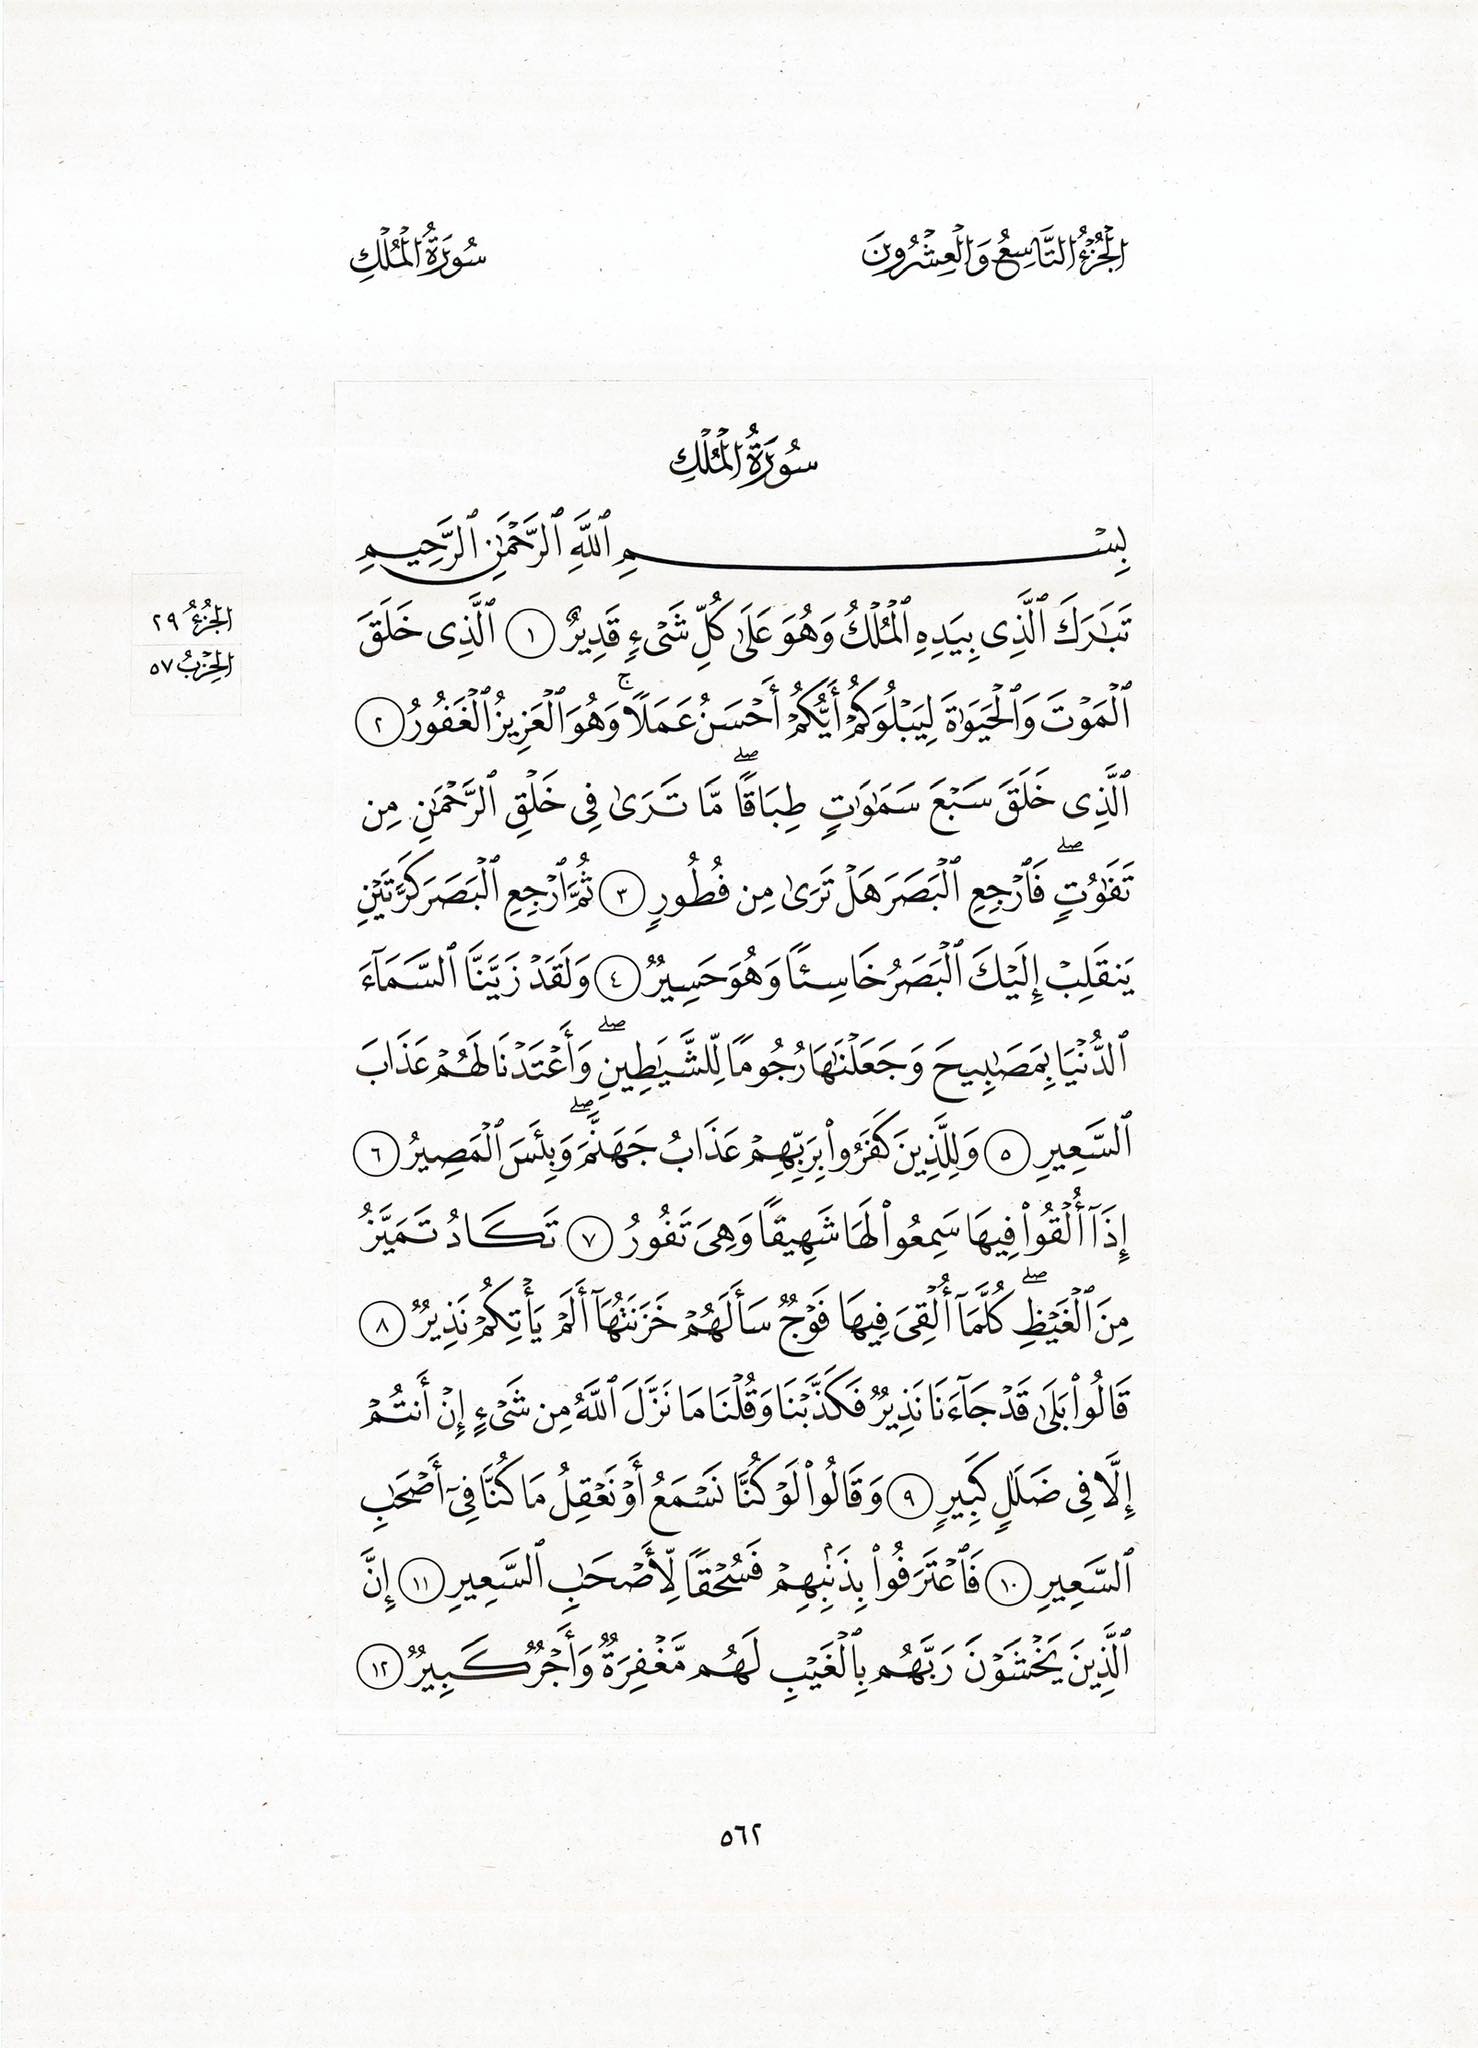 الجُزْءُ التَّاسِعُ وَالْعِشْرُونَ
سُورَةُ الْمُلْكِ
سُورَةُ الْمُلْكِ
بِسْمِ ٱللَّهِ ٱلرَّحْمَٰنِ ٱلرَّحِيمِ
تَبَٰرَكَ ٱلَّذِى بِيَدِهِ ٱلْمُلْكُ وَهُوَ عَلَىٰ كُلِّ شَىْءٍ قَدِيرٌ ١ ٱلَّذِى خَلَقَ
ٱلْمَوْتَ وَٱلْحَيَوٰةَ لِيَبْلُوَكُمْ أَيُّكُمْ أَحْسَنُ عَمَلًا ۚ وَهُوَ ٱلْعَزِيزُ ٱلْغَفُورُ ٢
ٱلَّذِى خَلَقَ سَبْعَ سَمَٰوَٰتٍ طِبَاقًا ۖ مَّا تَرَىٰ فِى خَلْقِ ٱلرَّحْمَٰنِ مِن
تَفَٰوُتٍ ۖ فَٱرْجِعِ ٱلْبَصَرَ هَلْ تَرَىٰ مِن فُطُورٍ ٣ ثُمَّ ٱرْجِعِ ٱلْبَصَرَ كَرَّتَيْنِ
يَنقَلِبْ إِلَيْكَ ٱلْبَصَرُ خَاسِئًا وَهُوَ حَسِيرٌ ٤ وَلَقَدْ زَيَّنَّا ٱلسَّمَآءَ
ٱلدُّنْيَا بِمَصَٰبِيحَ وَجَعَلْنَٰهَا رُجُومًا لِّلشَّيَٰطِينِ ۖ وَأَعْتَدْنَا لَهُمْ عَذَابَ
ٱلسَّعِيرِ ٥ وَلِلَّذِينَ كَفَرُوا۟ بِرَبِّهِمْ عَذَابُ جَهَنَّمَ ۖ وَبِئْسَ ٱلْمَصِيرُ ٦
إِذَآ أُلْقُوا۟ فِيهَا سَمِعُوا۟ لَهَا شَهِيقًا وَهِىَ تَفُورُ ٧ تَكَادُ تَمَيَّزُ
مِنَ ٱلْغَيْظِ ۖ كُلَّمَآ أُلْقِىَ فِيهَا فَوْجٌ سَأَلَهُمْ خَزَنَتُهَآ أَلَمْ يَأْتِكُمْ نَذِيرٌ ٨
قَالُوا۟ بَلَىٰ قَدْ جَآءَنَا نَذِيرٌ فَكَذَّبْنَا وَقُلْنَا مَا نَزَّلَ ٱللَّهُ مِن شَىْءٍ إِنْ أَنتُمْ
إِلَّا فِى ضَلَٰلٍ كَبِيرٍ ٩ وَقَالُوا۟ لَوْ كُنَّا نَسْمَعُ أَوْ نَعْقِلُ مَا كُنَّا فِىٓ أَصْحَٰبِ
ٱلسَّعِيرِ ١٠ فَٱعْتَرَفُوا۟ بِذَنۢبِهِمْ فَسُحْقًا لِّأَصْحَٰبِ ٱلسَّعِيرِ ١١ إِنَّ
ٱلَّذِينَ يَخْشَوْنَ رَبَّهُم بِٱلْغَيْبِ لَهُم مَّغْفِرَةٌ وَأَجْرٌ كَبِيرٌ ١٢
الجُزْءُ ٢٩
الحِزْبُ ٥٧
٥٦٢